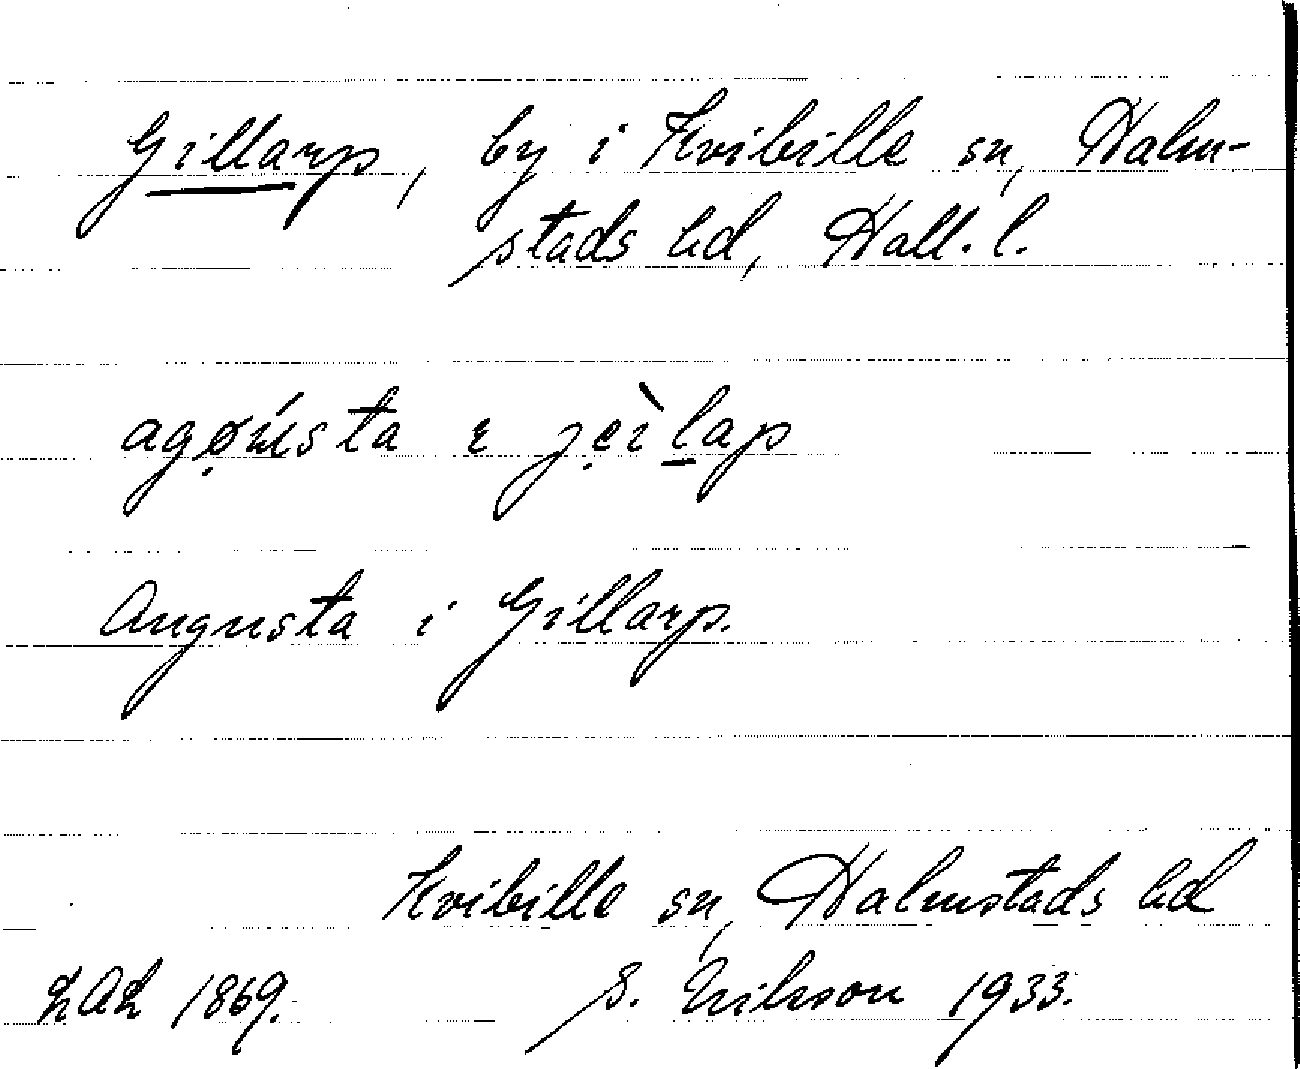 Gillarp, by i Kvibille sn, Halm-
stads hd, Hall. l.
agǫústa ɪ ję̀ɪḻap
Augusta i Gillarp.
Kvibille sn, Halmstads hd
LAL 1869. S. Nilsson 1933.